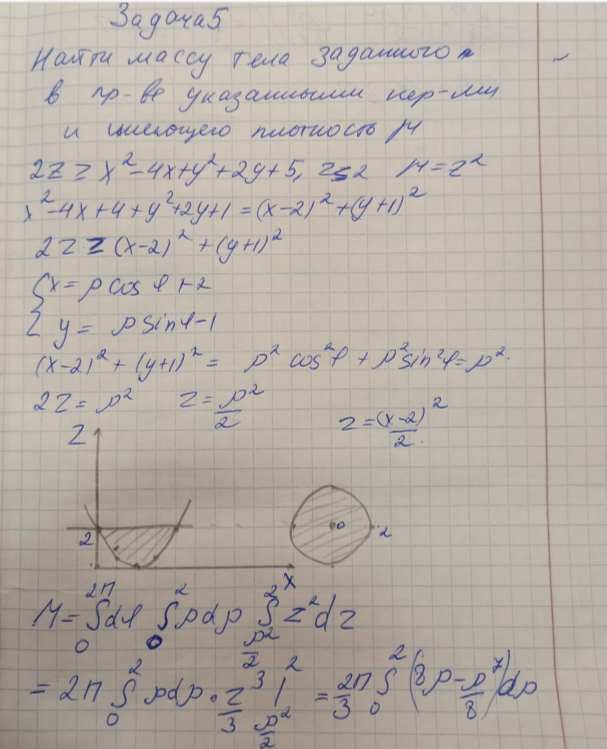 Задача 5
Найти массу тела заданного
в пр-ве указанными нер-ми
и имеющего плотность μ
2z ≥ x² - 4x + y² + 2y + 5, z ≤ 2 μ = z²
x² - 4x + 4 + y² + 2y + 1 = (x-2)² + (y+1)²
2z ≥ (x-2)² + (y+1)²
{ x = ρ cos φ + 2
y = ρ sin φ - 1
(x-2)² + (y+1)² = ρ² cos² φ + ρ² sin² φ = ρ².
2z = ρ² z = ρ²/2 z = (x-2)²/2.
Z
2 0 2
X
M = ∫₀^{2π} dφ ∫₀^2 ρ dρ ∫_{ρ²/2}^2 z² dz
= 2π ∫₀^2 ρ dρ · z³/3 |_{ρ²/2}^2 = 2π/3 ∫₀^2 (8ρ - ρ⁷/8) dρ